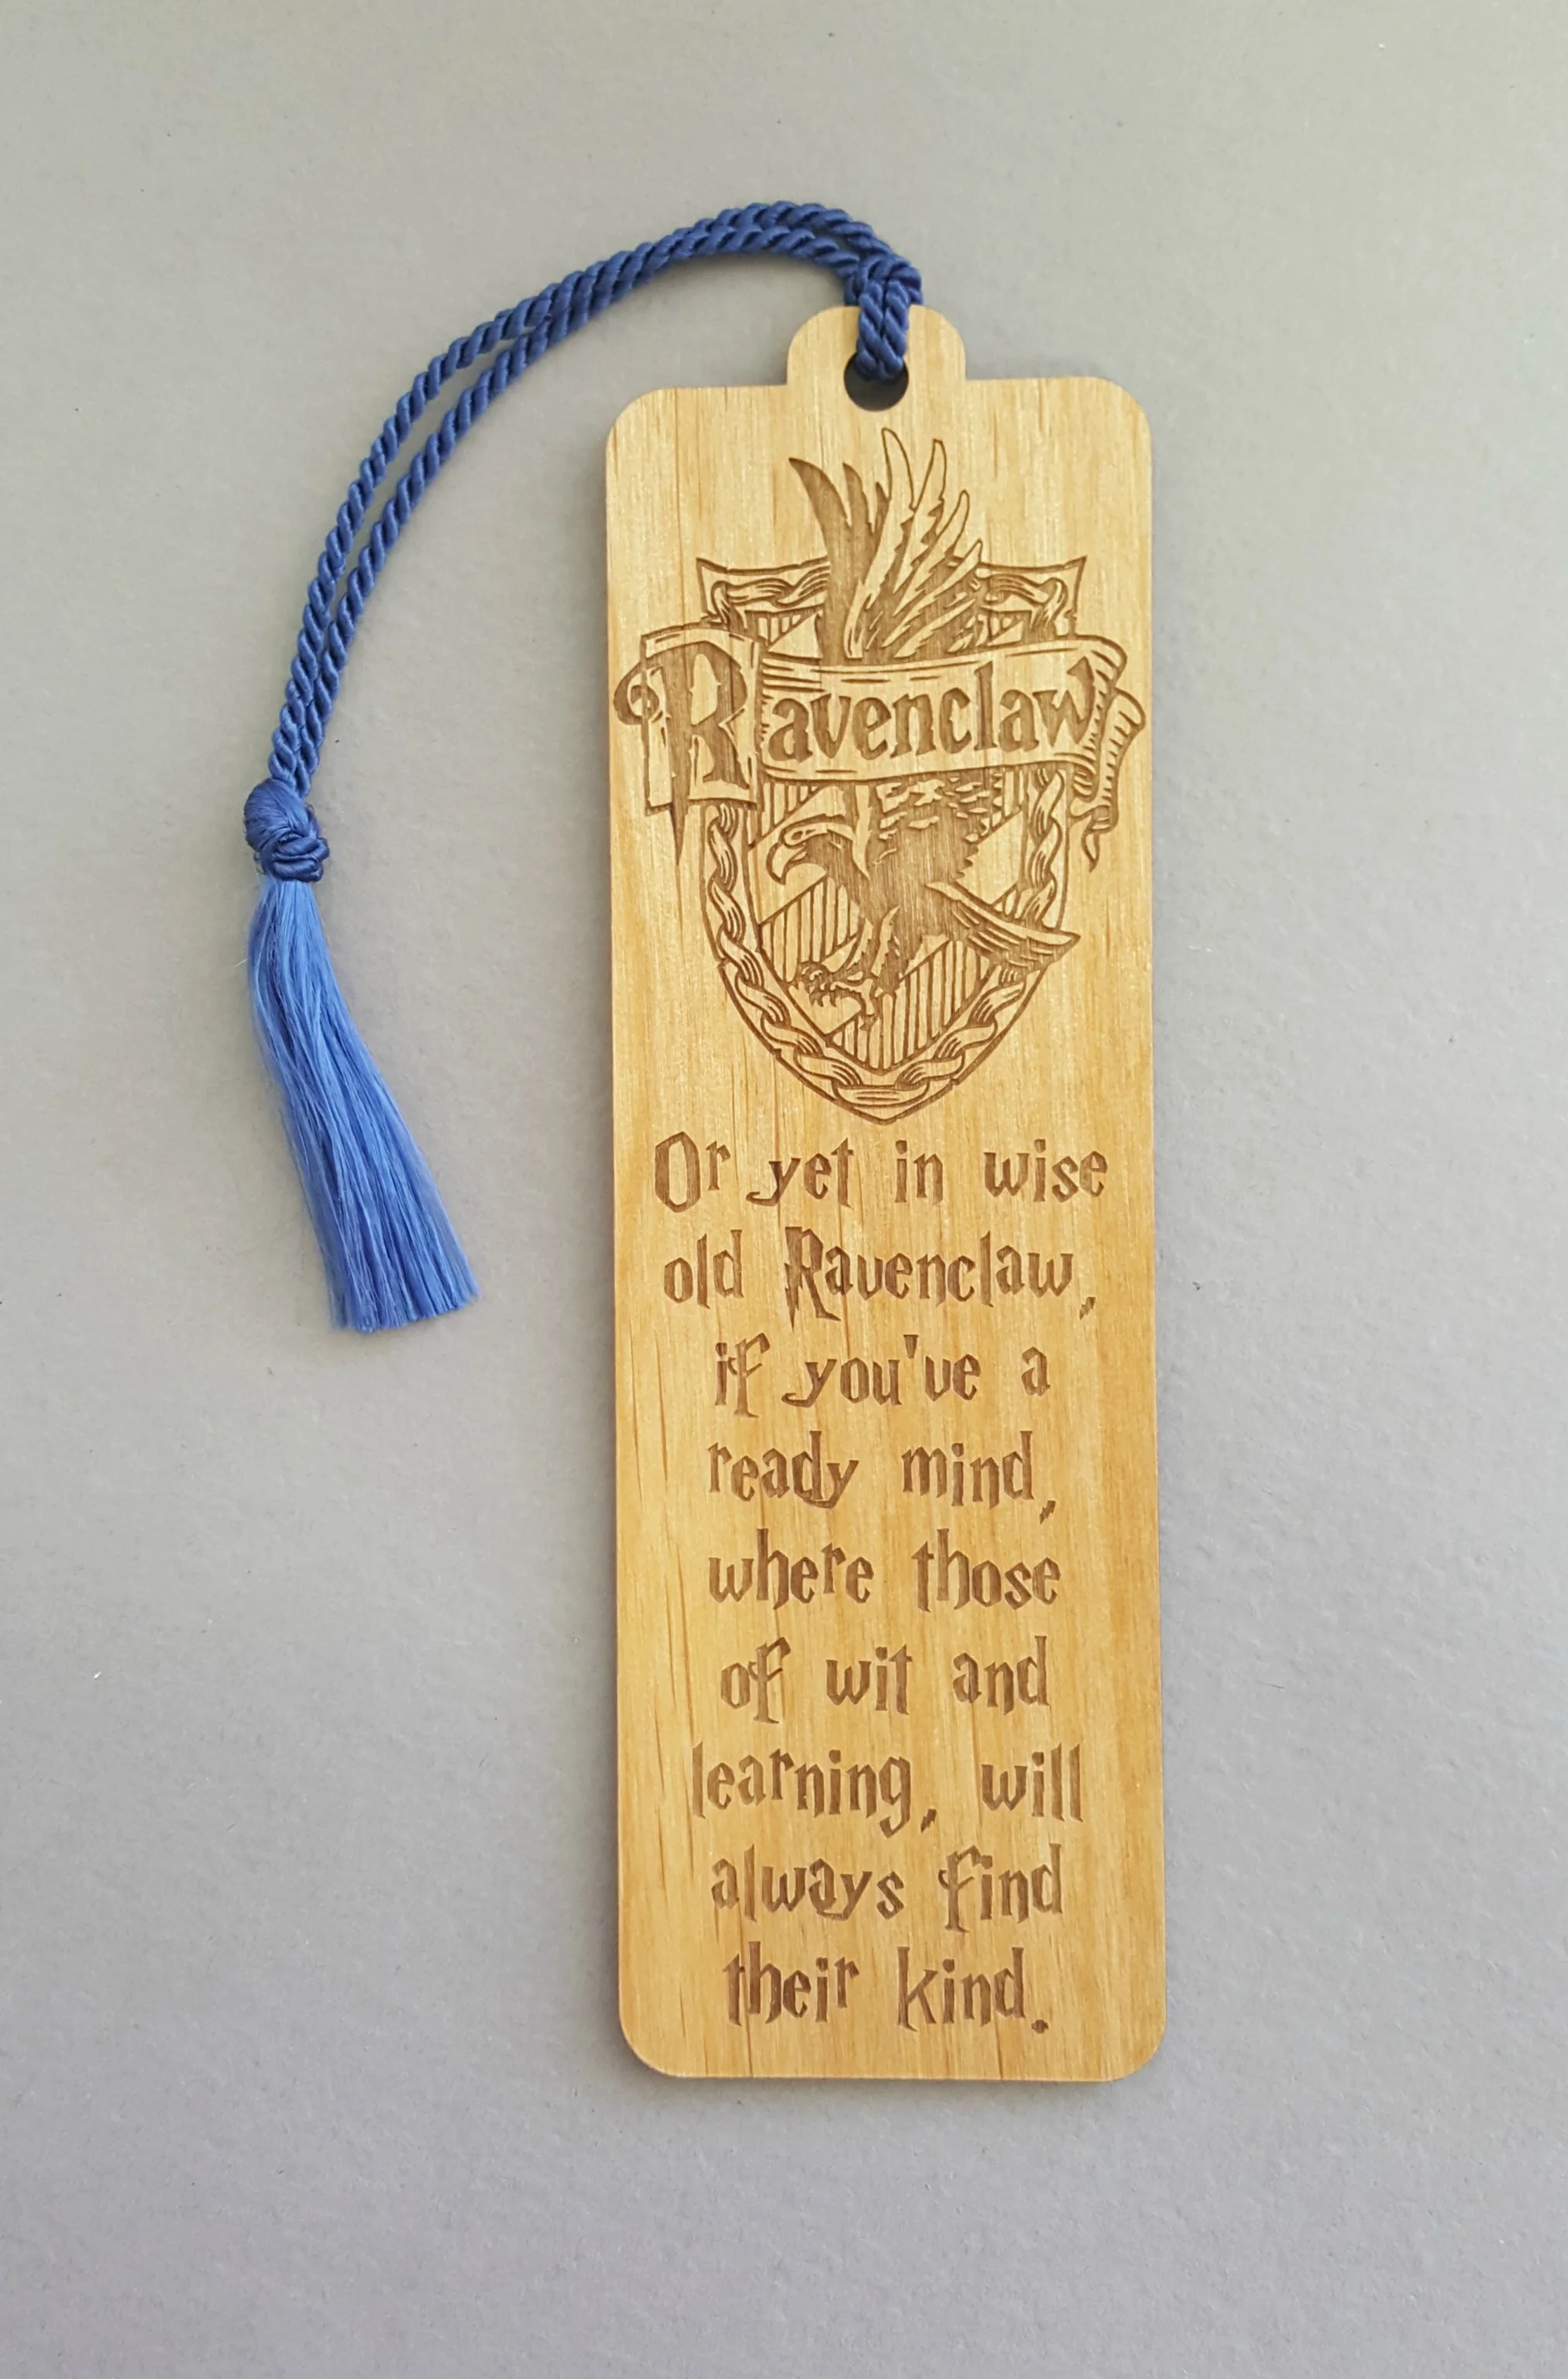 Ravenclaw
Or yet in wise
old Ravenclaw,
if you've a
ready mind,
where those
of wit and
learning, will
always find
their kind.